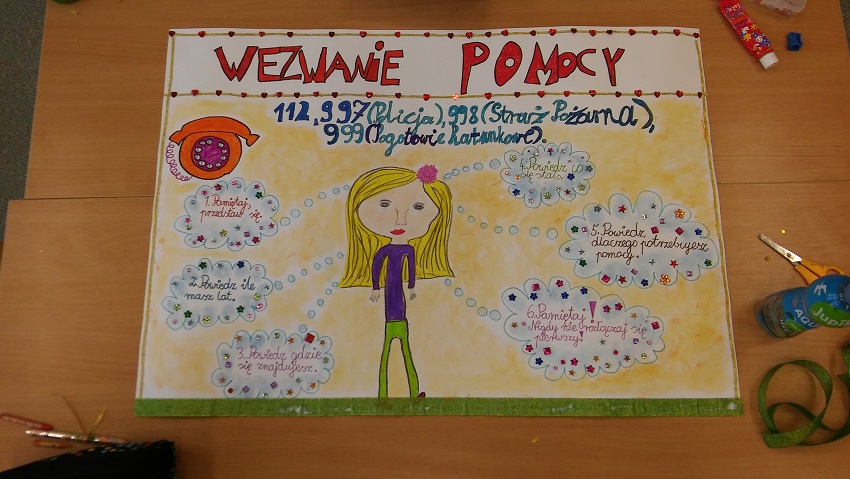 WEZWANIE POMOCY
112, 997 (Policja), 998 (Straż Pożarna),
999 (Pogotowie Ratunkowe).
1. Pamiętaj,
przedstaw się
2. Powiedz ile
masz lat.
3. Powiedz gdzie
się znajdujesz.
4. Powiedz co
się stało.
5. Powiedz
dlaczego potrzebujesz
pomocy.
6. Pamiętaj!
Nigdy nie rozłączaj się
pierwszy!